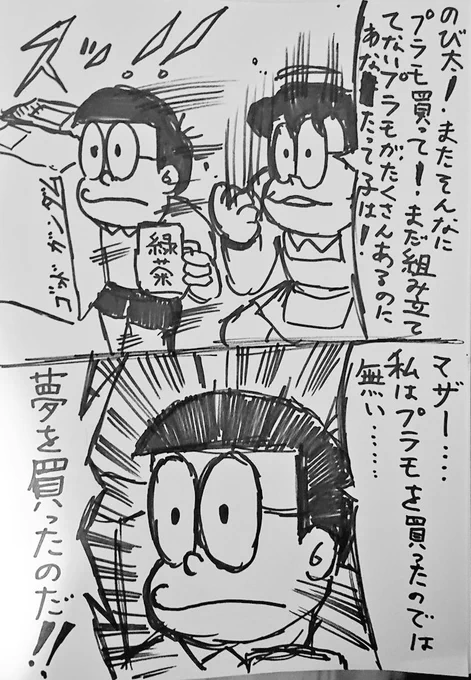 のび太！またそんなに
プラモ買って！まだ組み立て
てないプラモがたくさんあるのに
あなたって子は！
ズッ!!
緑茶
マザー……
私はプラモを買ったのでは
無い………
夢を買ったのだ!!